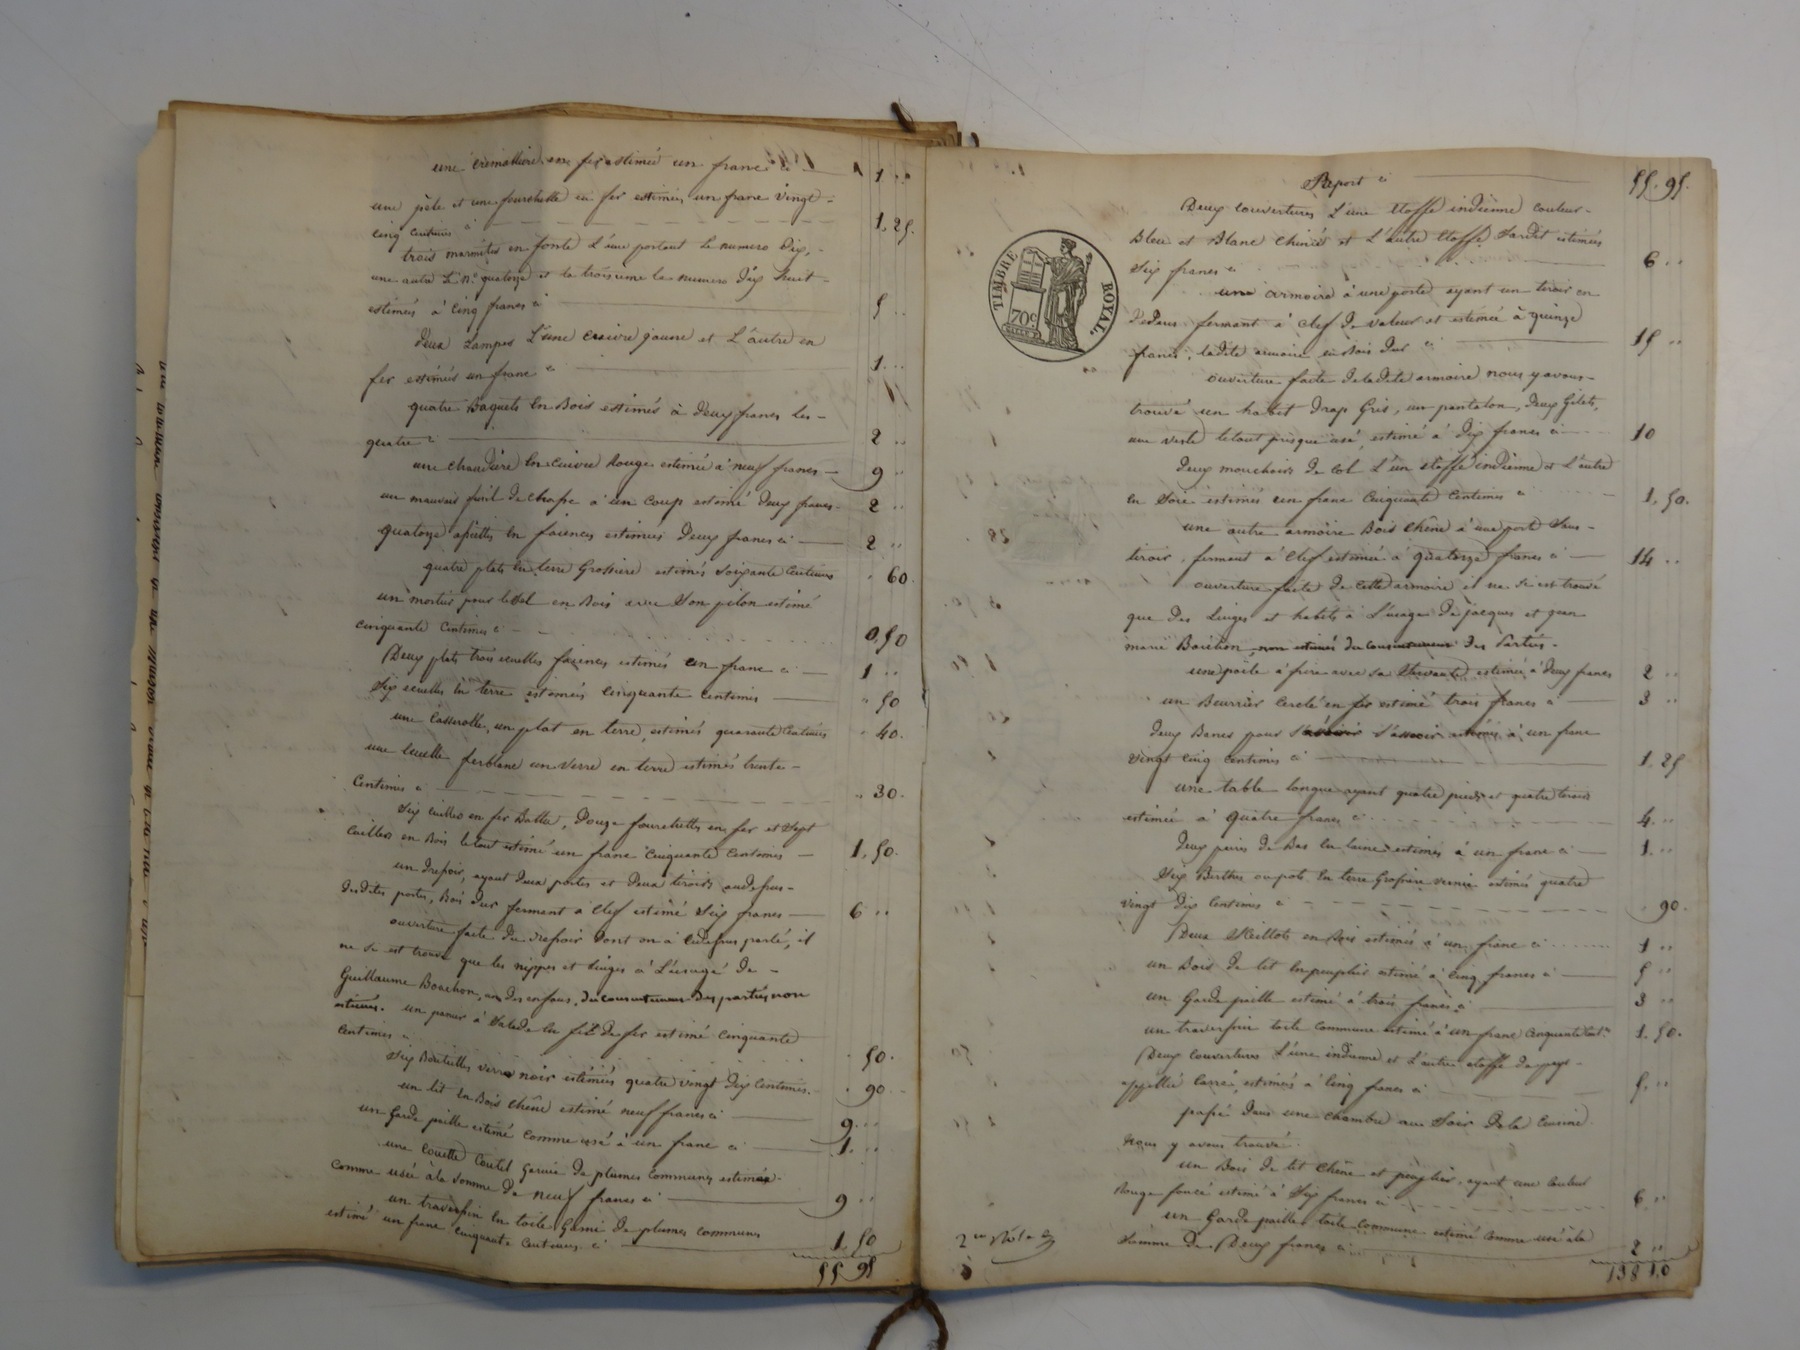 une crémaillère en fer estimée un franc ci 1 "
une pèle et une fourchette en fer estimées un franc vingt-
cinq centimes ci 1,25.
trois marmites en fonte L'une portant le numero Dix,
une autre le N° quatorze et la troisieme le numero Dix huit-
estimées à Cinq francs ci 5 "
Deux Lampes L'une cuivre jaune et L'autre en
fer estimées un franc ci 1. "
quatre Baquets en Bois estimés à Deux francs les-
quatre ci 2 "
une chaudière en cuivre Rouge estimée à neuf francs 9 "
un mauvais fusil de chasse a un coup estimé Deux francs. 2 "
quatorze assiettes en faience estimées Deux francs ci 2 "
quatre plats en terre Grossiere estimés soixante Centimes " 60.
un mortier pour le sel en Bois avec Son pilon estimé
cinquante centimes ci 0,50
Deux plats trois ecuelles faience estimés un franc ci 1 "
Six ecuelles en terre estimées Cinquante Centimes " 50
une Casserolle, un plat en terre, estimés quarante Centimes " 40.
une ecuelle ferblanc un verre en terre estimés trente-
Centimes ci " 30.
Six cuilles en fer Battu, Douze fourchettes en fer et Sept
Cuilles en Bois le tout estimé un franc cinquante Centimes 1,50.
un Drefoir, ayant Deux portes et Deux tiroirs audessus-
Desdites portes, Bois Dur fermant a Clef estimé Six francs 6 "
ouverture faite du Drefoir Dont on a cidessus parlé, il
ne Se est trouvé que les nippes et linges à L'usage de -
Guillaume Bouchon, un des enfans, du consentement des parties non
estimés. un panier à Salade en fil De fer estimé Cinquante
Centimes ci " 50.
Six Bouteilles verre noir estimées quatre vingt Dix Centimes. " 90
un lit en Bois Chêne estimé neuf francs ci 9 "
un Garde paille estimé comme usé à un franc ci 1. "
une couette Coutil Garnie de plumes communes estimée
Comme usée à la Somme De neuf francs ci 9 "
un traversin en toile Garni de plumes communes
estimé un franc cinquante Centimes ci 1,50
55 95
Report ci 55.95.
Deux Couvertures L'une Etoffe indienne Couleur-
Bleu et Blanc chinée et L'autre Etoffe Sardit estimées
Six francs ci 6 "
une armoire à une porte ayant un tiroir en
Dedans fermant à Clef De valeur et estimée à quinze
francs, ladite armoire en Bois Dur ci 15 "
ouverture faite De ladite armoire nous y avons-
trouvé un habit Drap Gris, un pantalon, Deux Gilets,
une veste le tout presque usé, estimé à Dix francs ci 10
Deux mouchoirs De Col L'un etoffe indienne et L'autre
en Soie estimés un franc Cinquante Centimes ci 1,50.
une autre armoire Bois Chêne à une porte Sans-
tiroir, fermant à Clef estimée à quatorze francs ci 14 "
ouverture faite De cette armoire il ne Se est trouvé
que Des Linges et habits à L'usage De jacques et jean
marie Bouchon, non estimés du consentement Des Parties.
une poële à frire avec sa Servante estimée à Deux francs 2 "
un Beurrier Cerclé en fer estimé trois francs ci 3 "
Deux Bancs pour S'asseoir estimés à un franc
vingt cinq centimes ci 1,25
une table longue ayant quatre pieds et quatre tiroirs
estimée à quatre francs ci 4. "
Deux paires De Bas en laine estimés à un franc ci 1. "
Six Berthes ou pots en terre Grossiere vernie estimés quatre
vingt Dix Centimes ci 90.
Deux Seillots en Bois estimés à un franc ci 1 "
un Bois De lit en peuplier estimé à Cinq francs ci 5 "
un Garde paille estimé à trois francs ci 3 "
un traversin toile commune estimé à un franc cinquante Cent.es 1.50.
Deux Couvertures L'une indienne et L'autre etoffe Du pays-
appellée Carré, estimées à Cinq francs ci 5. "
passé Dans une Chambre au Soir De la Cuisine
nous y avons trouvé.
un Bois De lit Chêne et peuplier, ayant une Couleur
Rouge foncé estimé à Six francs ci 6. "
un Garde paille toile commune estimé comme usé à la
Somme De Deux francs ci 2 "
138 10
TIMBRE ROYAL.
70c
2me Rôle